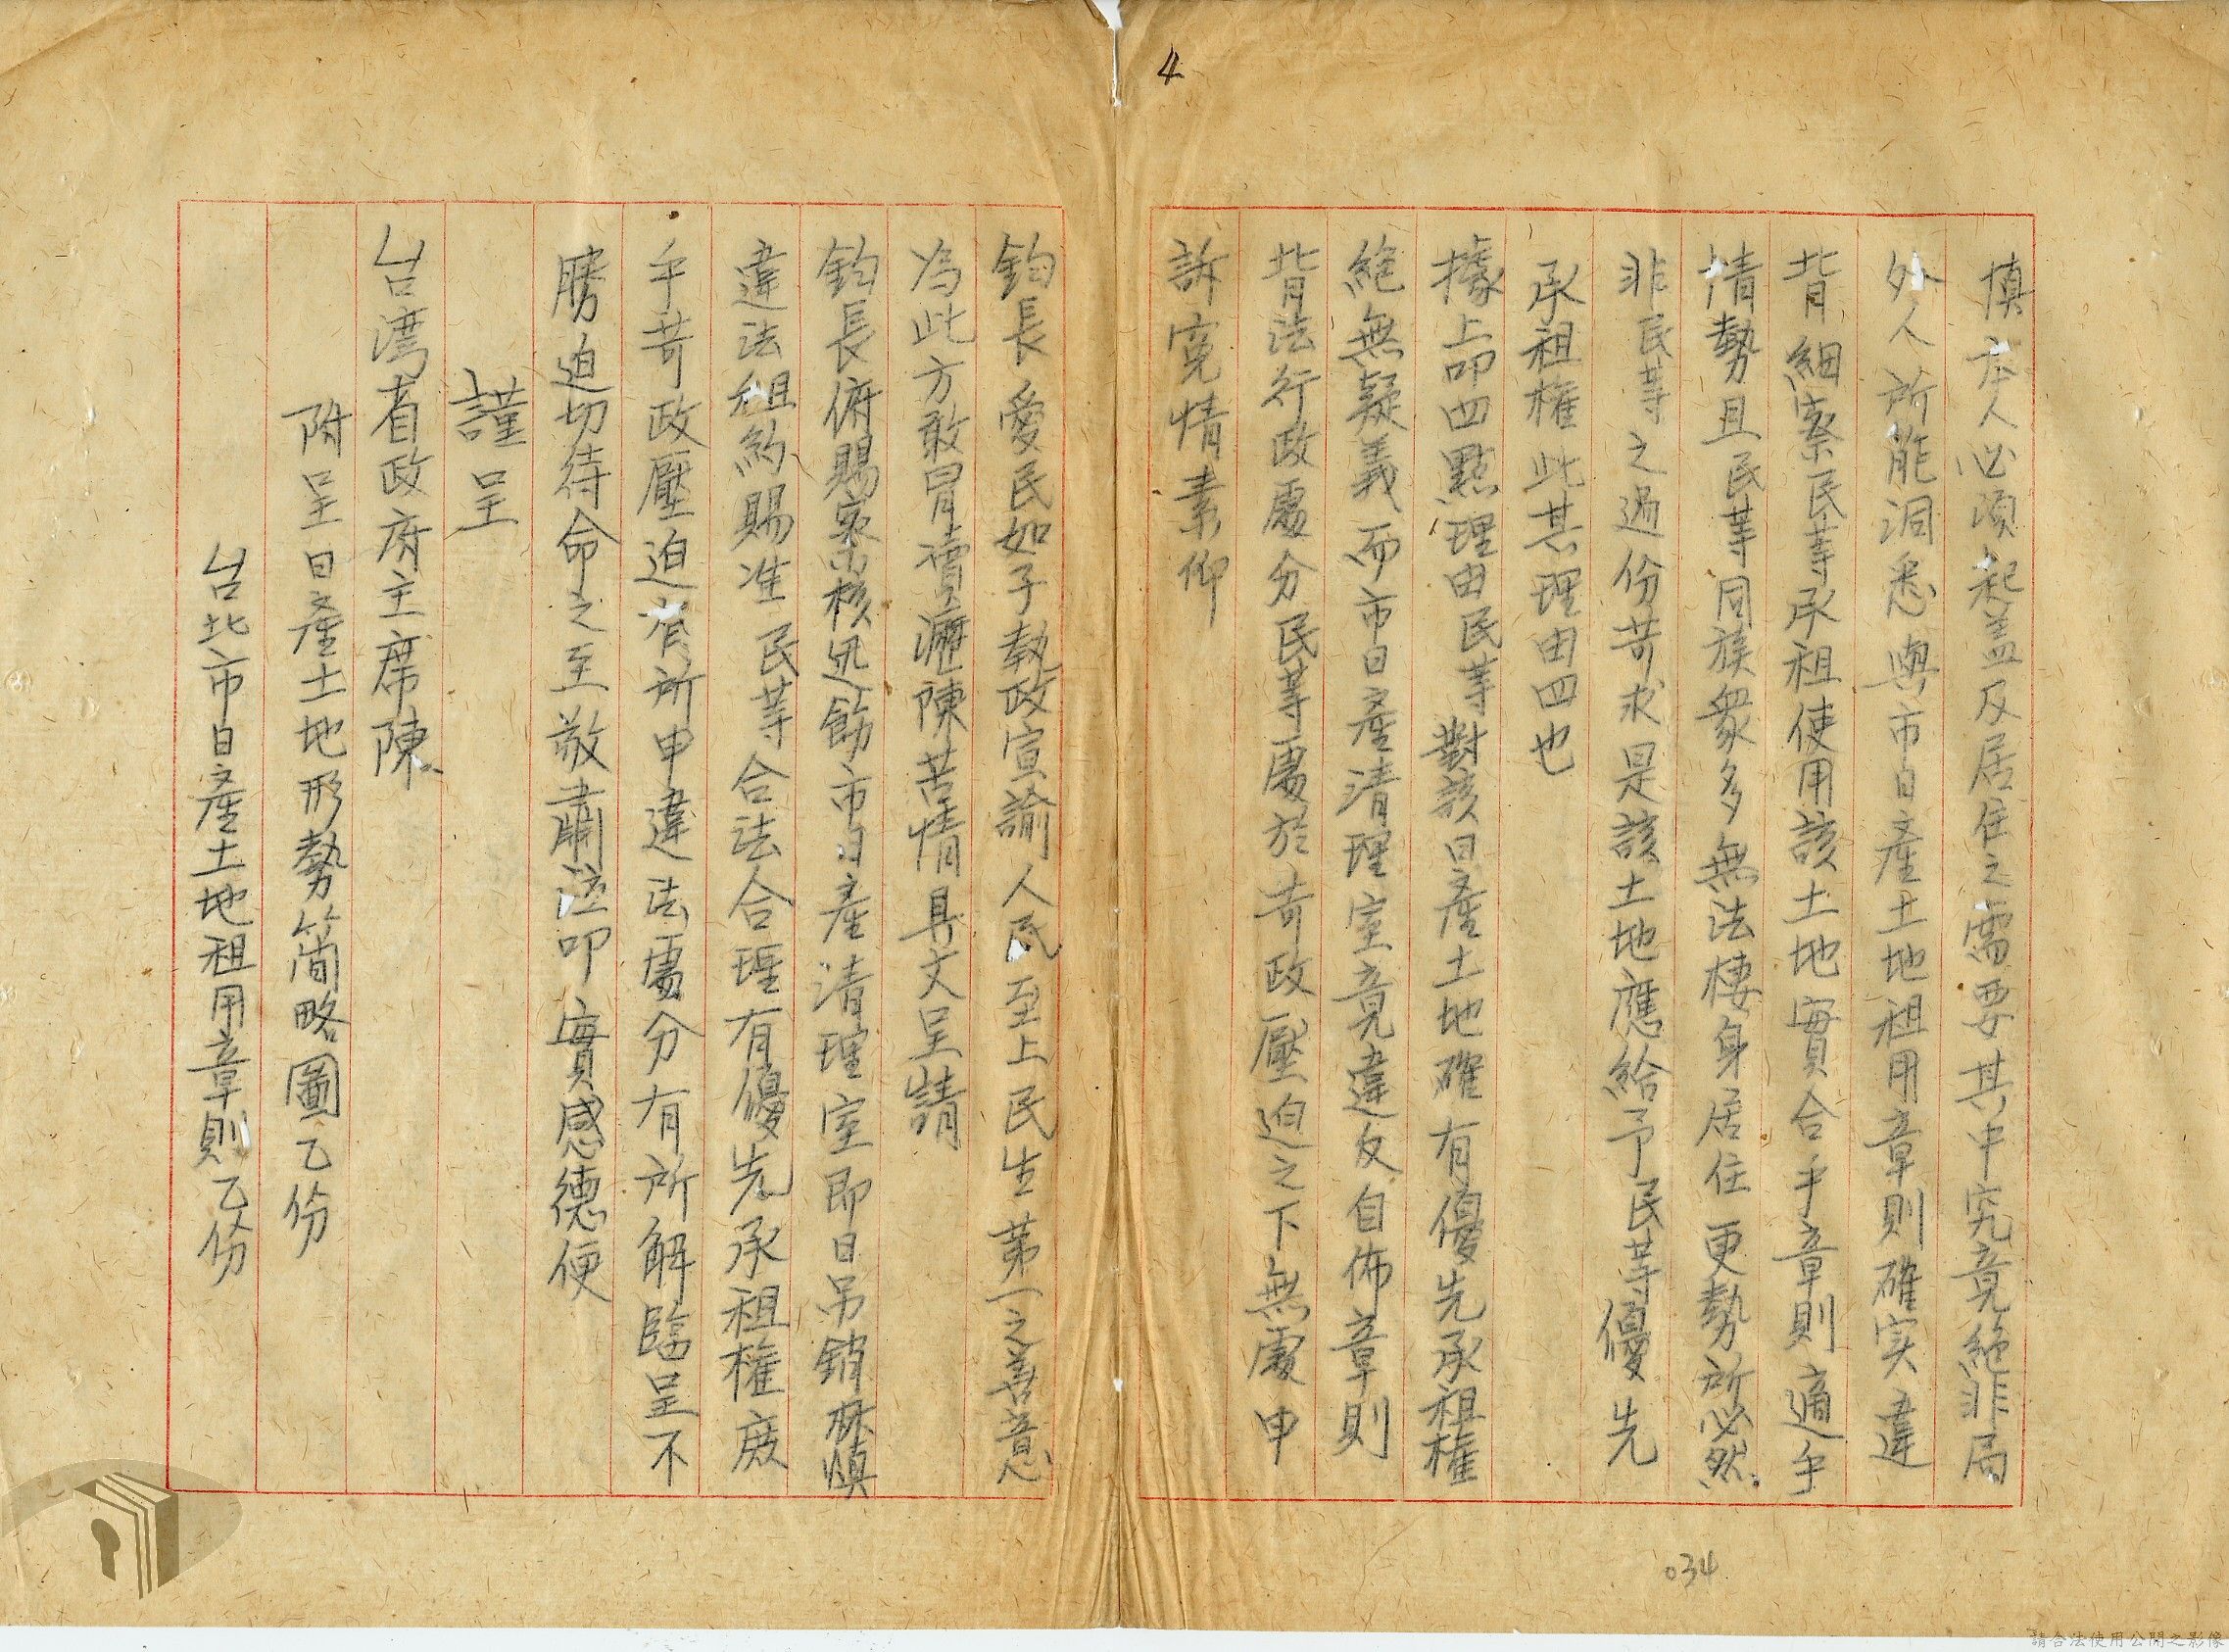 4
慎本人必須起盖及居住之需要其中究竟絕非局
外人所能洞悉與市日產土地租用章則確実違
背細察民等承租使用該土地實合乎章則適乎
情勢且民等同族衆多無法棲身居住更勢所必然
非民等之過份苛求是該土地應給予民等優先
承租權此其理由四也
據上叩四點理由民等對該日產土地確有優先承租權
絕無疑義而市日產清理室竟違反自佈章則
背法行政處分民等處於苛政壓迫之下無處申
訴寃情素仰
鈞長愛民如子執政宣諭人民至上民生第一之善意
為此方敢冒瀆瀝陳苦情具文呈請
鈞長俯賜察核迅飭市日產清理室即日吊銷林慎
違法租約賜准民等合法合理有優先承租權庶
乎苛政壓迫有所申違法處分有所解臨呈不
勝迫切待命之至敬肅泣叩實感德便
謹呈
台湾省政府主席陳
附呈日產土地形勢簡略圖乙份
台北市日產土地租用章則乙份
034
請合法使用公開之影像